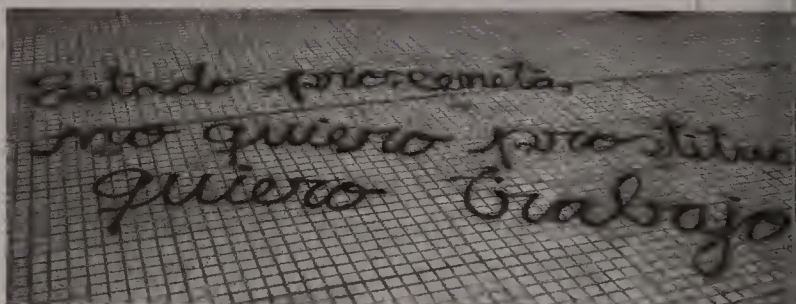 Estado proxeneta,
no quiero prostituc
quiero trabajo